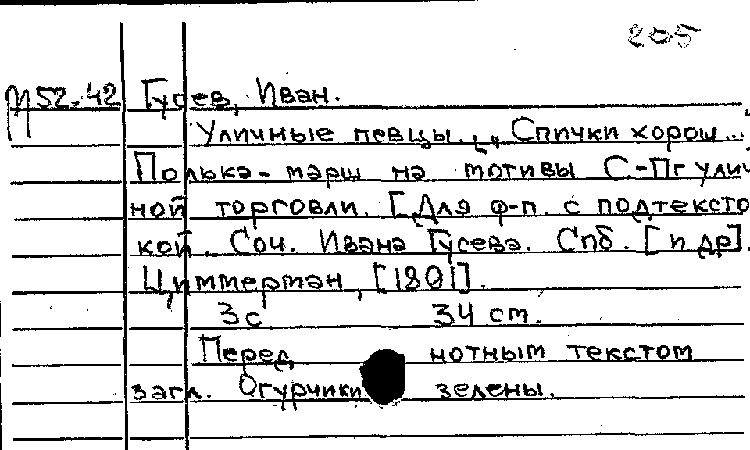 205
М52-42 Гусев, Иван.
Уличные певцы. „Спички хорош...
Полька-марш на мотивы С-Пг улич
ной торговли. [Для ф-п. с подтексто
кой. Соч. Ивана Гусева. Спб. [и др].
Циммерман, [1901].
3с 34 см.
Перед нотным текстом
загл. Огурчики зелены.